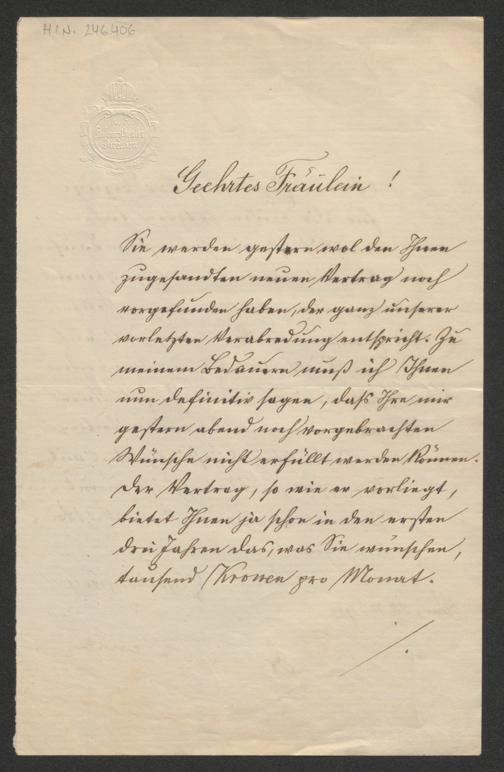 HIN. 246406
Geehrtes Fräulein !
Sie werden gestern wol den Ihnen
zugesandten neuen Vertrag noch
vorgefunden haben, der ganz unserer
vorletzten Verabredung entspricht. Zu
meinem Bedauern muß ich Ihnen
nun definitiv sagen, daß Ihre mir
gestern abend noch vorgebrachten
Wünsche nicht erfüllt werden können.
Der Vertrag, so wie er vorliegt,
bietet Ihnen ja schon in den ersten
drei Jahren das, was Sie wünschen,
tausend Kronen pro Monat.
./.